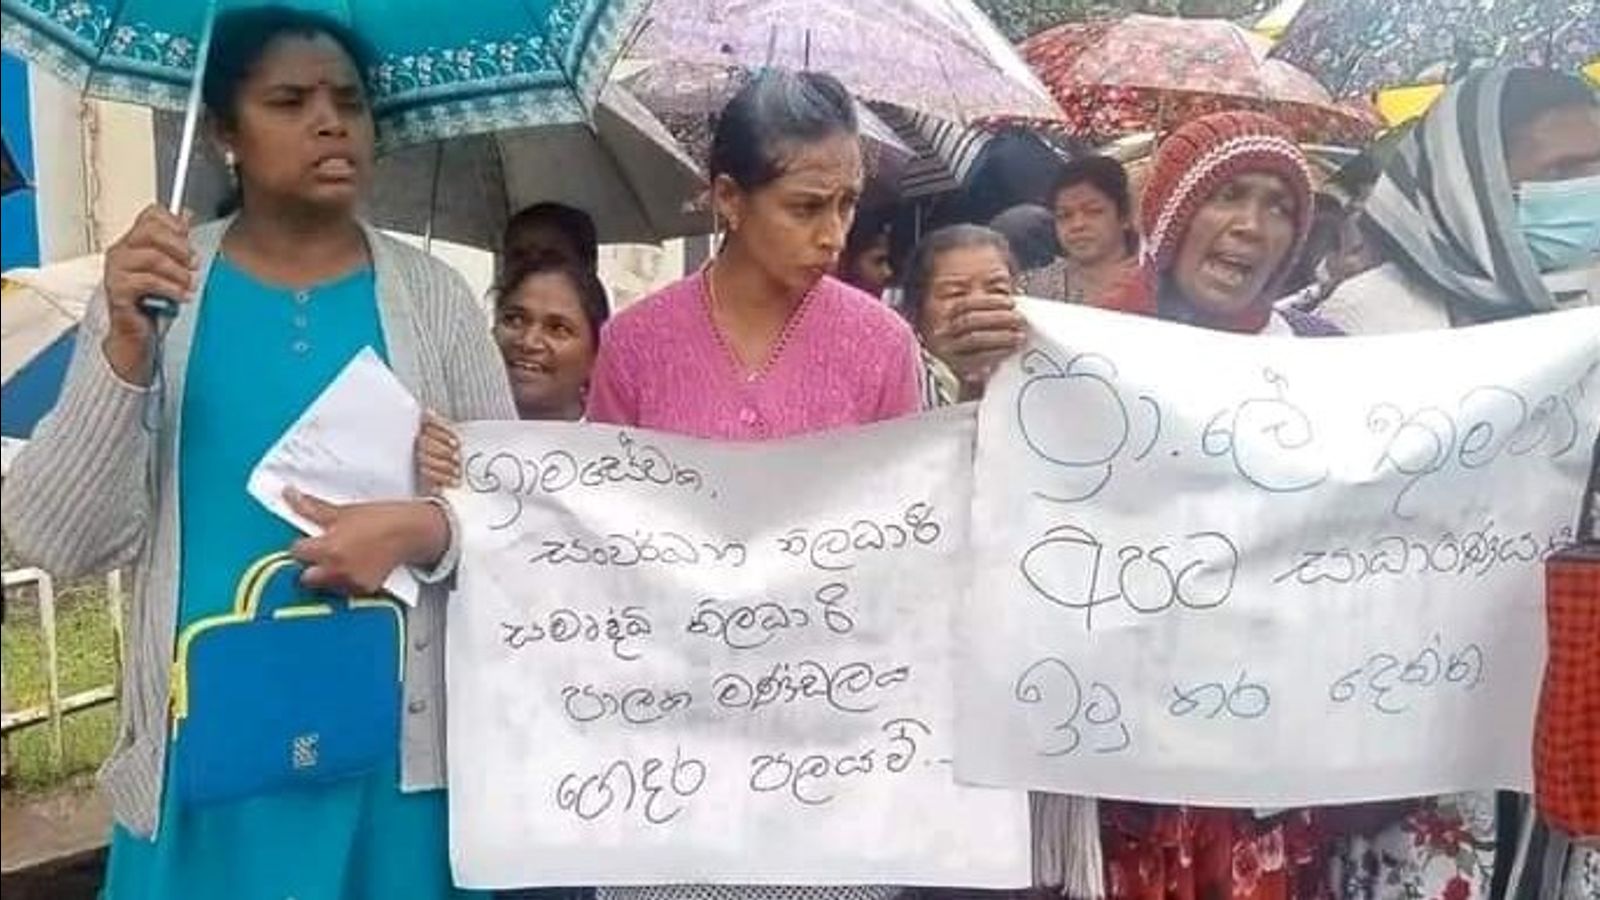 ග්‍රාමසේවක,
සංවර්ධන නිලධාරි
සමෘද්ධි නිලධාරි
පාලක මණ්ඩලය
ගෙදර පලයව්..
ප්‍රා. ලේකම්
අපට සාධාරණය
ඉටු කර දෙන්න